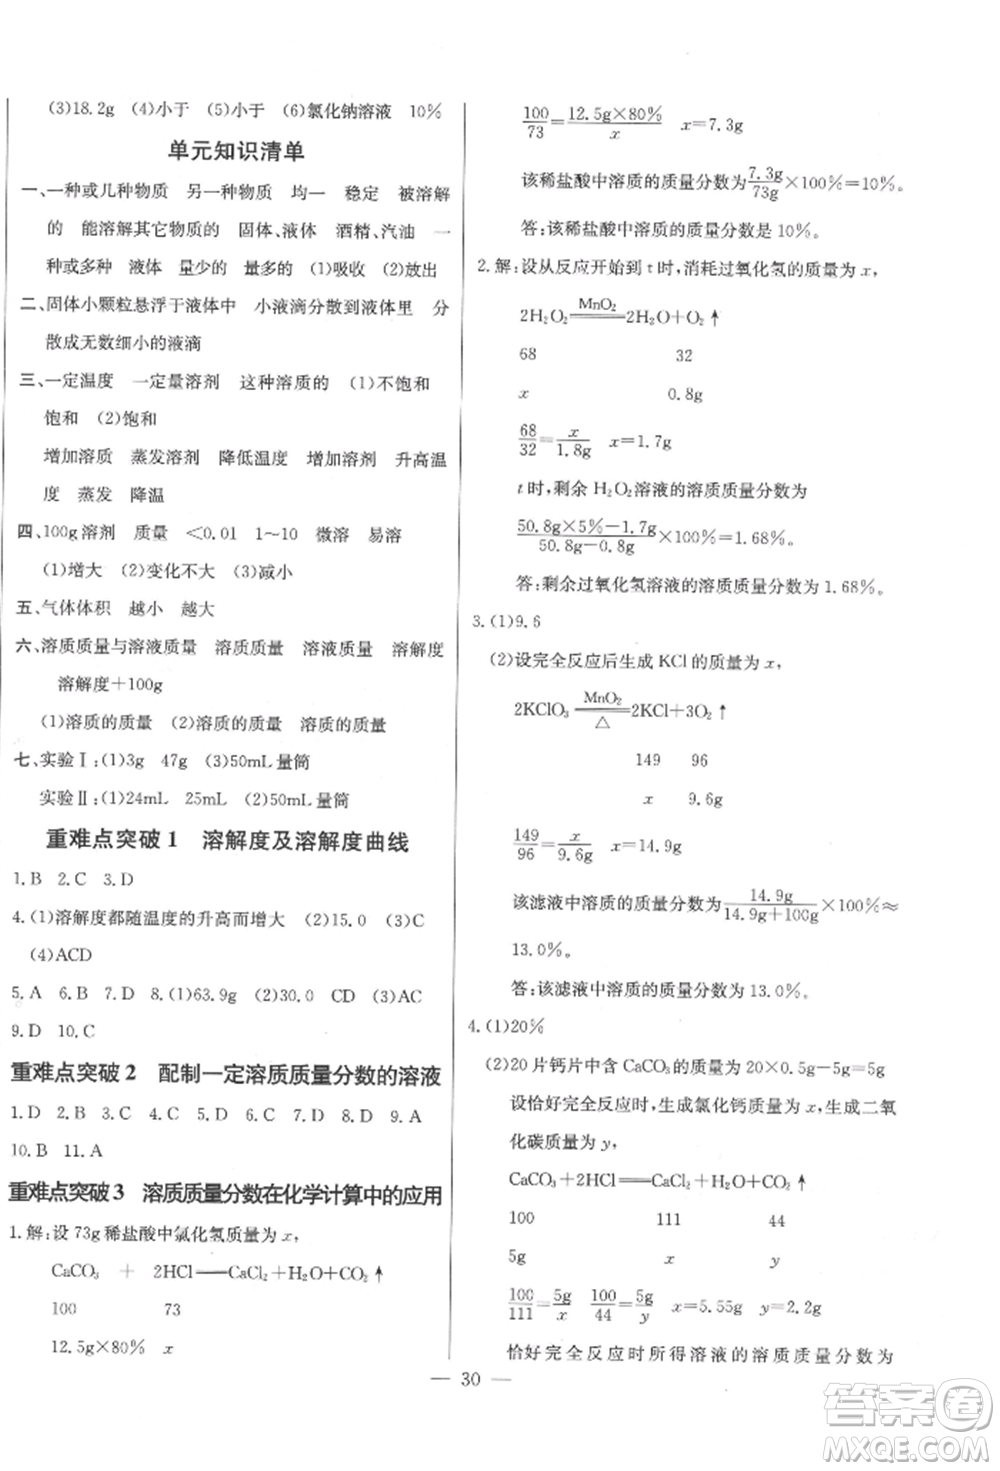 (3)18.2g (4)小于 (5)小于 (6)氯化钠溶液 10%
单元知识清单
一、一种或几种物质 另一种物质 均一 稳定 被溶解
的 能溶解其它物质的 固体、液体 酒精、汽油 一
种或多种 液体 量少的 量多的 (1)吸收 (2)放出
二、固体小颗粒悬浮于液体中 小液滴分散到液体里 分
散成无数细小的液滴
三、一定温度 一定量溶剂 这种溶质的 (1)不饱和
饱和 (2)饱和
增加溶质 蒸发溶剂 降低温度 增加溶剂 升高温
度 蒸发 降温
四、100g溶剂 质量 <0.01 1~10 微溶 易溶
(1)增大 (2)变化不大 (3)减小
五、气体体积 越小 越大
六、溶质质量与溶液质量 溶质质量 溶液质量 溶解度
溶解度+100g
(1)溶质的质量 (2)溶质的质量 溶质的质量
七、实验Ⅰ:(1)3g 47g (3)50mL量筒
实验Ⅱ:(1)24mL 25mL (2)50mL量筒
重难点突破1 溶解度及溶解度曲线
1.B 2.C 3.D
4.(1)溶解度都随温度的升高而增大 (2)15.0 (3)C
(4)ACD
5.A 6.B 7.D 8.(1)63.9g (2)30.0 CD (3)AC
9.D 10.C
重难点突破2 配制一定溶质质量分数的溶液
1.D 2.B 3.C 4.C 5.D 6.C 7.D 8.D 9.A
10.B 11.A
重难点突破3 溶质质量分数在化学计算中的应用
1.解:设73g稀盐酸中氯化氢质量为x,
CaCO₃ + 2HCl══CaCl₂+H₂O+CO₂↑
100 73
12.5g×80% x
100/73=12.5g×80%/x x=7.3g
该稀盐酸中溶质的质量分数为7.3g/73g×100%=10%。
答:该稀盐酸中溶质的质量分数是10%。
2.解:设从反应开始到t时,消耗过氧化氢的质量为x,
MnO₂
2H₂O₂══2H₂O+O₂↑
68 32
x 0.8g
68/32=x/1.8g x=1.7g
t时,剩余H₂O₂溶液的溶质质量分数为
50.8g×5%-1.7g/50.8g-0.8g×100%=1.68%
答:剩余过氧化氢溶液的溶质质量分数为1.68%。
3.(1)9.6
(2)设完全反应后生成KCl的质量为x,
MnO₂
2KClO₃══2KCl+3O₂↑
△
149 96
x 9.6g
149/96=x/9.6g x=14.9g
该滤液中溶质的质量分数为14.9g/14.9g+100g×100%≈
13.0%。
答:该滤液中溶质的质量分数为13.0%。
4.(1)20%
(2)20片钙片中含CaCO₃的质量为20×0.25g=5g
设恰好完全反应时,生成氯化钙质量为x,生成二氧
化碳质量为y,
CaCO₃+2HCl══CaCl₂+H₂O+CO₂↑
100 111 44
5g x y
100/111=5g/x 100/44=5g/y x=5.55g y=2.2g
恰好完全反应时所得溶液的溶质质量分数为
— 30 —
答案圈
MXQE.COM